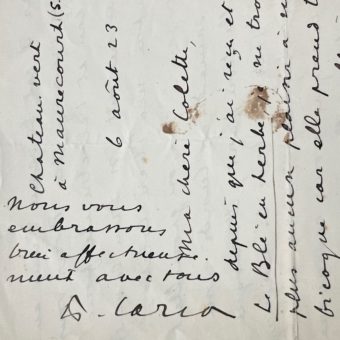 Chateau vert
à Maurecourt (S.
6 août 23
Ma chère Colette,
depuis que j'ai reçu et
Le Blé en herbe je ne tro
plus aucun plaisir à
bicoque car elle prend t
Nous vous
embrassons
bien affectueuse-
ment avec tous